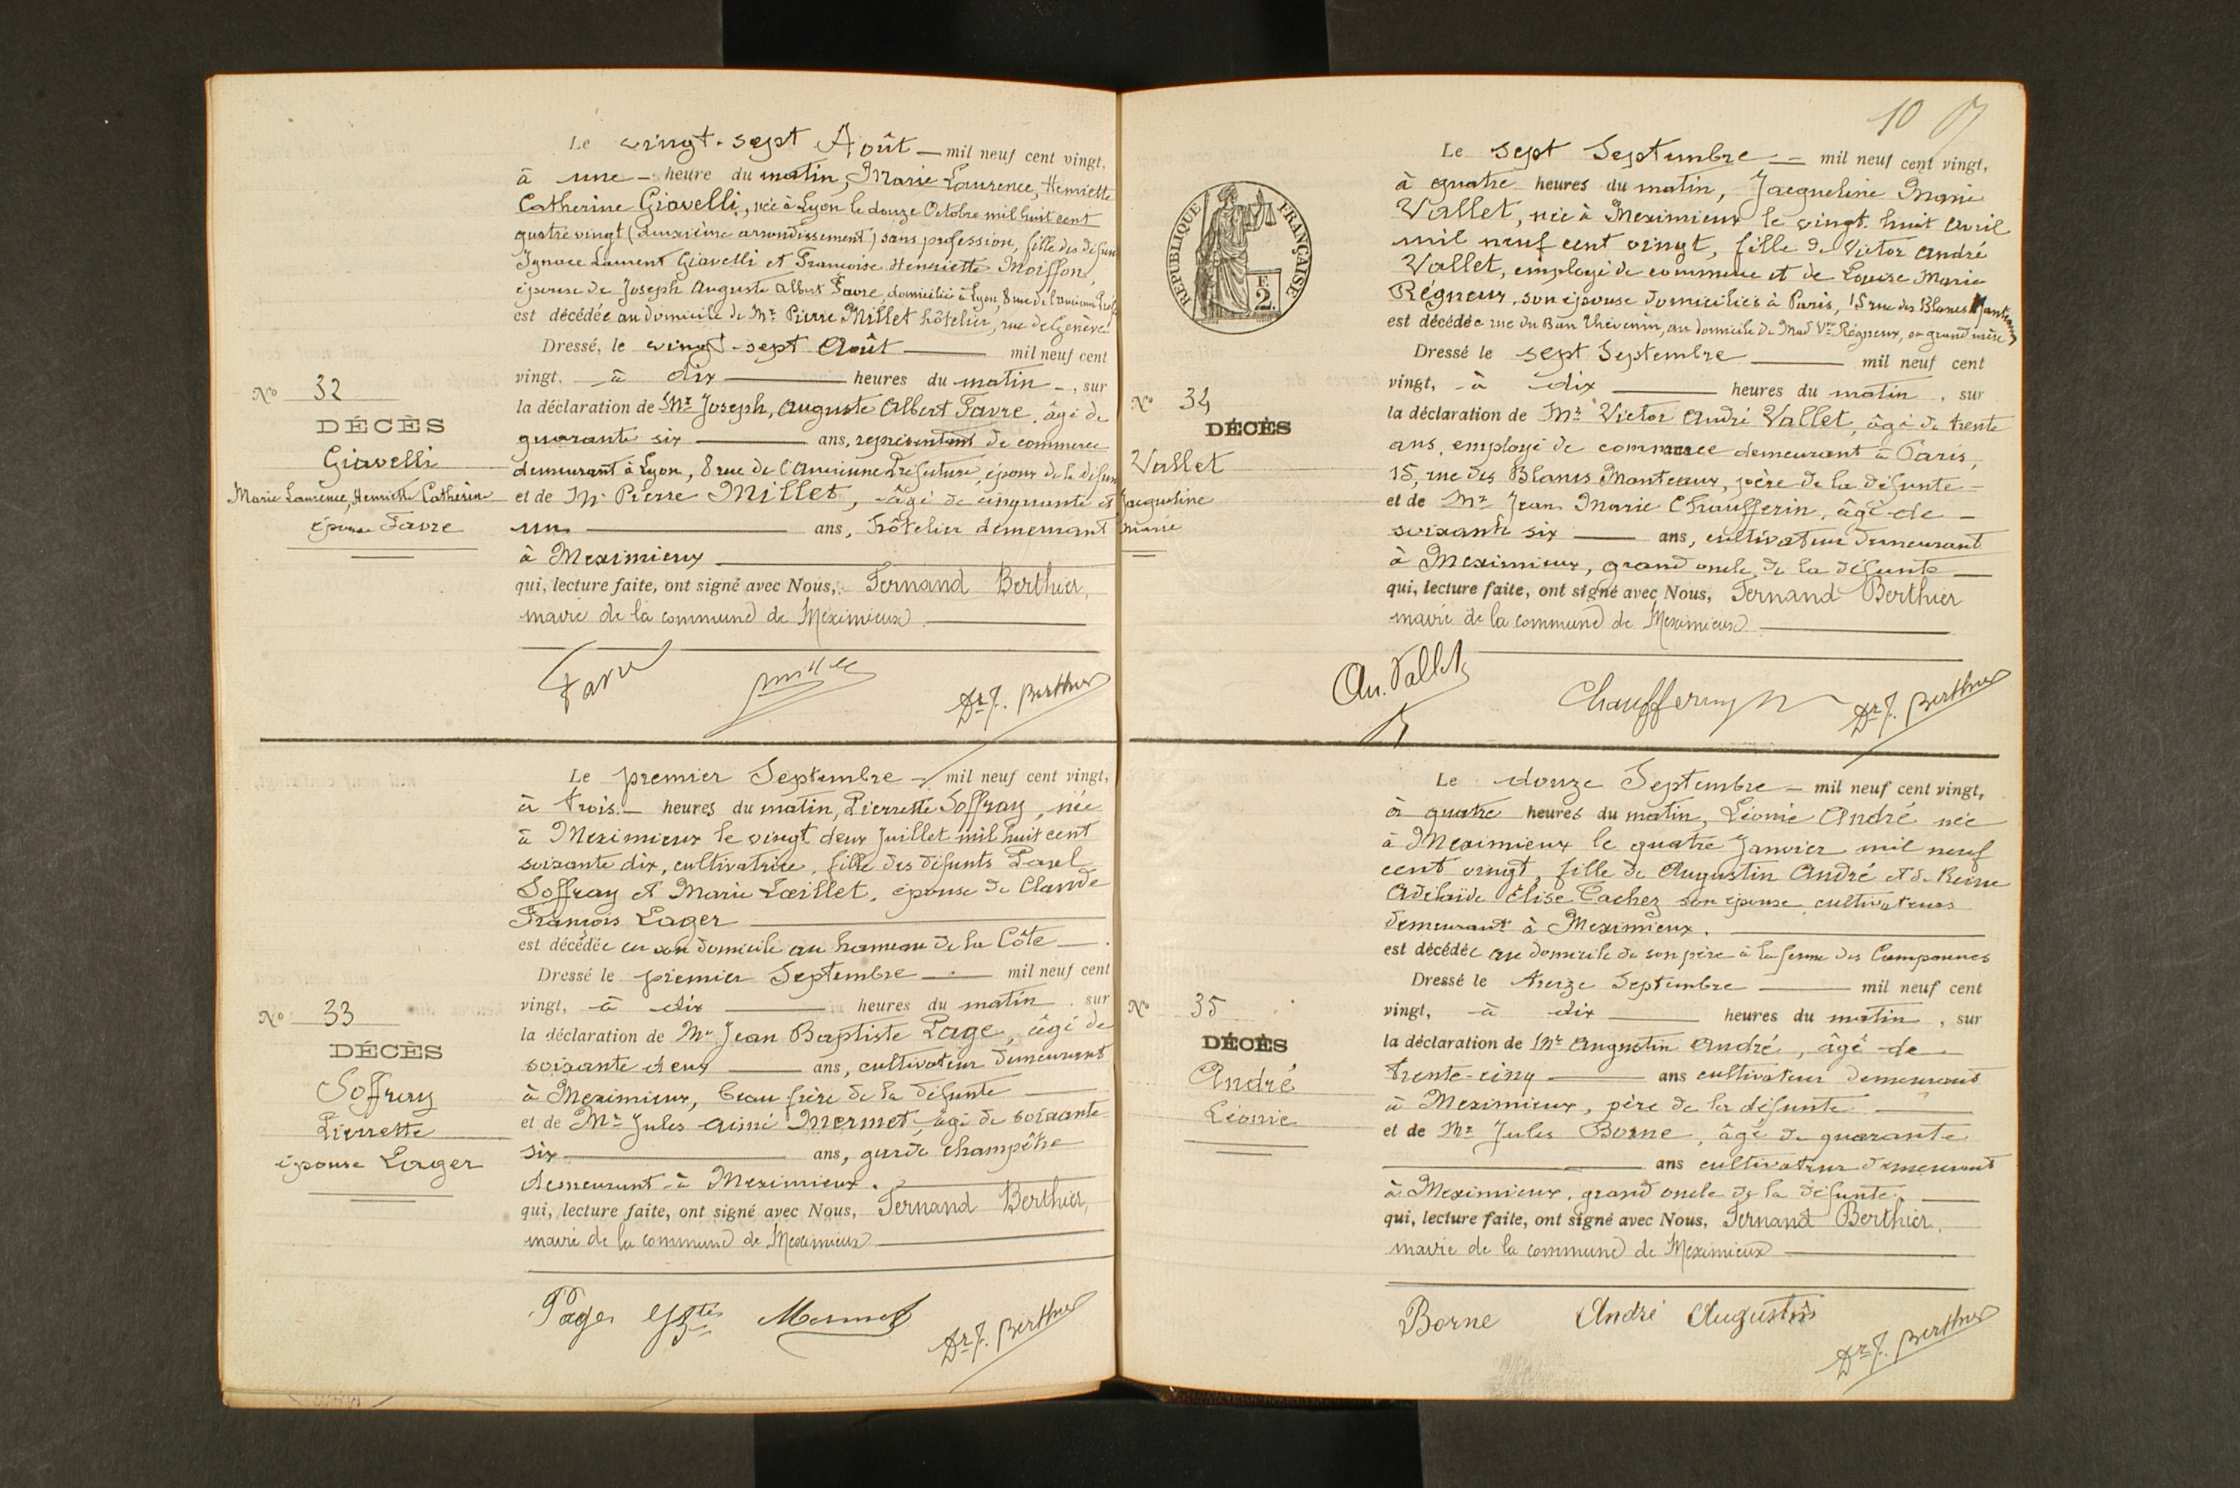 Le vingt-sept Août — mil neuf cent vingt,
à une — heure du matin, Marie Laurence, Henriette
Catherine Giavelli, née à Lyon le douze Octobre mil huit cent
quatre vingt (deuxième arrondissement) sans profession, fille des défun
Ignace Laurent Giavelli et Françoise Henriette Moiffon,
épouse de Joseph Auguste Albert Favre, domicilié à Lyon, 8 rue de l'ancienne Préf
est décédée au domicile de Mr Pierre Millet hôtelier, rue de Genève
Dressé, le vingt-sept Août — mil neuf cent
vingt, à dix — heures du matin, sur
la déclaration de Mr Joseph, Auguste Albert Favre, âgé de
quarante six — ans, représentant de commerce
demeurant à Lyon, 8 rue de l'Ancienne Préfecture, époux de la défun
et de Mr Pierre Millet, âgé de cinquante et
un — ans, hôtelier demeurant
à Meximieux —
qui, lecture faite, ont signé avec Nous, Fernand Berthier,
maire de la commune de Meximieux —
No 32
DÉCÈS
Giavelli
Marie Laurence, Henriette Catherine
épouse Favre
Favre Millet Dr F. Berthier
Le premier Septembre — mil neuf cent vingt,
à trois — heures du matin, Pierrette Soffray, née
à Meximieux le vingt deux Juillet mil huit cent
soixante dix, cultivatrice, fille des défunts Paul
Soffray et Marie Lœillet, épouse de Claude
François Lager —
est décédée en son domicile au hameau de la Côte —
Dressé le premier Septembre — mil neuf cent
vingt, à dix — heures du matin, sur
la déclaration de Mr Jean Baptiste Page, âgé de
soixante deux — ans, cultivateur demeurant
à Meximieux, beau frère de la défunte —
et de Mr Jules Aimé Mermet, âgé de soixante
six — ans, garde champêtre
demeurant à Meximieux. —
qui, lecture faite, ont signé avec Nous, Fernand Berthier,
maire de la commune de Meximieux —
No 33
DÉCÈS
Soffray
Pierrette
épouse Lager
Page Mermet Dr F. Berthier
10
RÉPUBLIQUE FRANÇAISE
2 F.
Le sept Septembre — mil neuf cent vingt,
à quatre heures du matin, Jacqueline Marie
Vallet, née à Meximieux le vingt-huit avril
mil neuf cent vingt, fille de Victor André
Vallet, employé de commerce et de Louise Marie
Régneux, son épouse domiciliés à Paris, 15 rue des Blancs Manteaux
est décédée rue du Ban Thévenin, au domicile de Mad. Vve Régneux, sa grand'mère
Dressé le sept Septembre — mil neuf cent
vingt, à dix — heures du matin, sur
la déclaration de Mr Victor André Vallet, âgé de trente
ans, employé de commerce demeurant à Paris,
15, rue des Blancs Manteaux, père de la défunte —
et de Mr Jean Marie Chaufferin, âgé de —
soixante six — ans, cultivateur demeurant
à Meximieux, grand oncle de la défunte —
qui, lecture faite, ont signé avec Nous, Fernand Berthier
maire de la commune de Meximieux —
No 34
DÉCÈS
Vallet
Jacqueline
Marie
An. Vallet Chaufferin Dr F. Berthier
Le douze Septembre — mil neuf cent vingt,
à quatre heures du matin, Léonie André née
à Meximieux le quatre Janvier mil neuf
cent vingt, fille de Augustin André et de Reine
Adélaïde Elise Cachez son épouse cultivateurs
demeurant à Meximieux. —
est décédée au domicile de son père à la ferme des Camponnes
Dressé le treize Septembre — mil neuf cent
vingt, à dix — heures du matin, sur
la déclaration de Mr Augustin André, âgé de —
trente-cinq — ans cultivateur demeurant
à Meximieux, père de la défunte —
et de Mr Jules Borne, âgé de quarante
— ans cultivateur demeurant
à Meximieux, grand oncle de la défunte. —
qui, lecture faite, ont signé avec Nous, Fernand Berthier,
maire de la commune de Meximieux —
No 35
DÉCÈS
André
Léonie
Borne André Augustin Dr F. Berthier